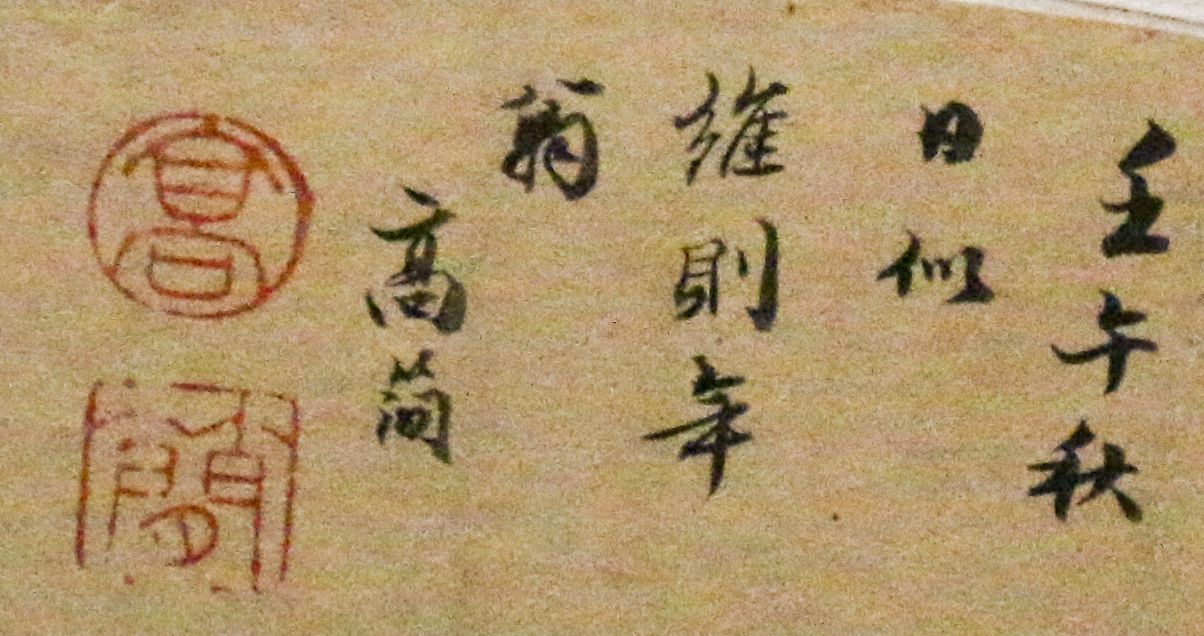 壬午秋
日似
維則年
翁
高簡
高
簡